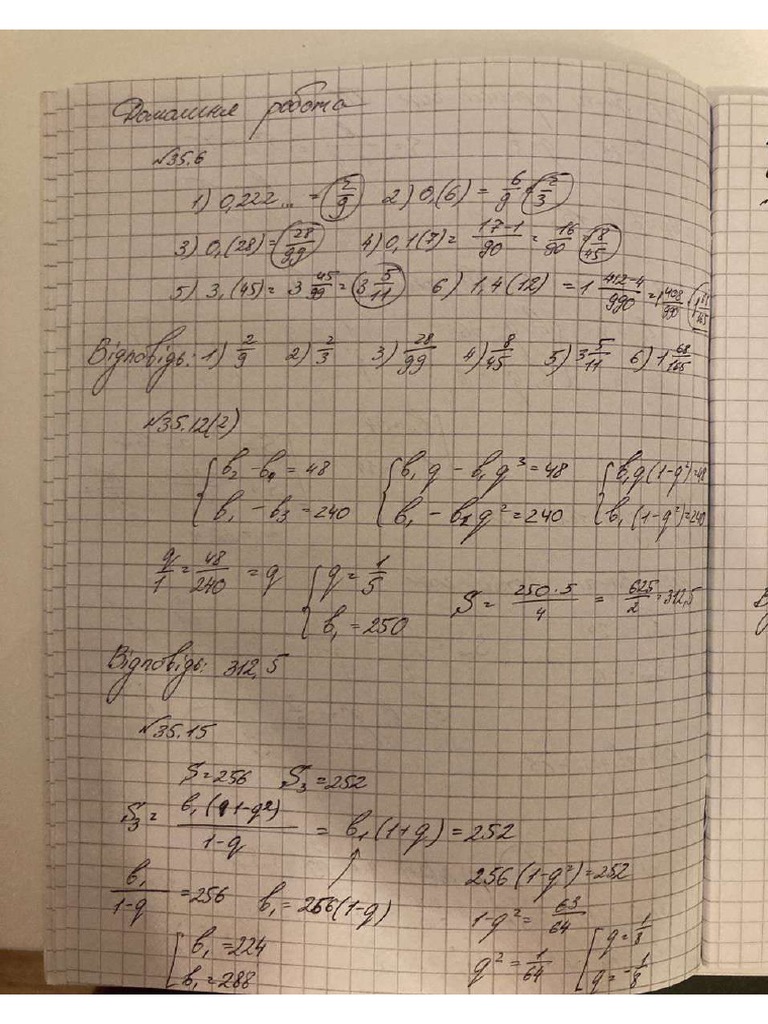 Домашня робота
№35.6
1) 0,222... = 2/9 2) 0,(6) = 6/9 = 2/3
3) 0,(28) = 28/99 4) 0,1(7) = 17-1/90 = 16/90 = 8/45
5) 3,(45) = 3 45/99 = 3 5/11 6) 1,4(12) = 1 412-4/990 = 1 408/990
Відповідь: 1) 2/9 2) 2/3 3) 28/99 4) 8/45 5) 3 5/11 6) 1 68/165
№35.12(2)
{ b₂ - b₄ = 48 { b₁q - b₁q³ = 48 { b₁q(1-q²) = 48
b₁ - b₃ = 240 b₁ - b₁q² = 240 b₁(1-q²) = 240
q/1 = 48/240 = q { q = 1/5 S = 250·5/4 = 625/2 = 312,5
b₁ = 250
Відповідь: 312,5
№35.15
S = 256 S₃ = 252
S₃ = b₁(1-q²)/1-q = b₁(1+q) = 252
b₁/1-q = 256 b₁ = 256(1-q) 256(1-q²) = 252
1-q² = 63/64
[ b₁ = 224 q² = 1/64 [ q = 1/8
b₁ = 288 q = -1/8